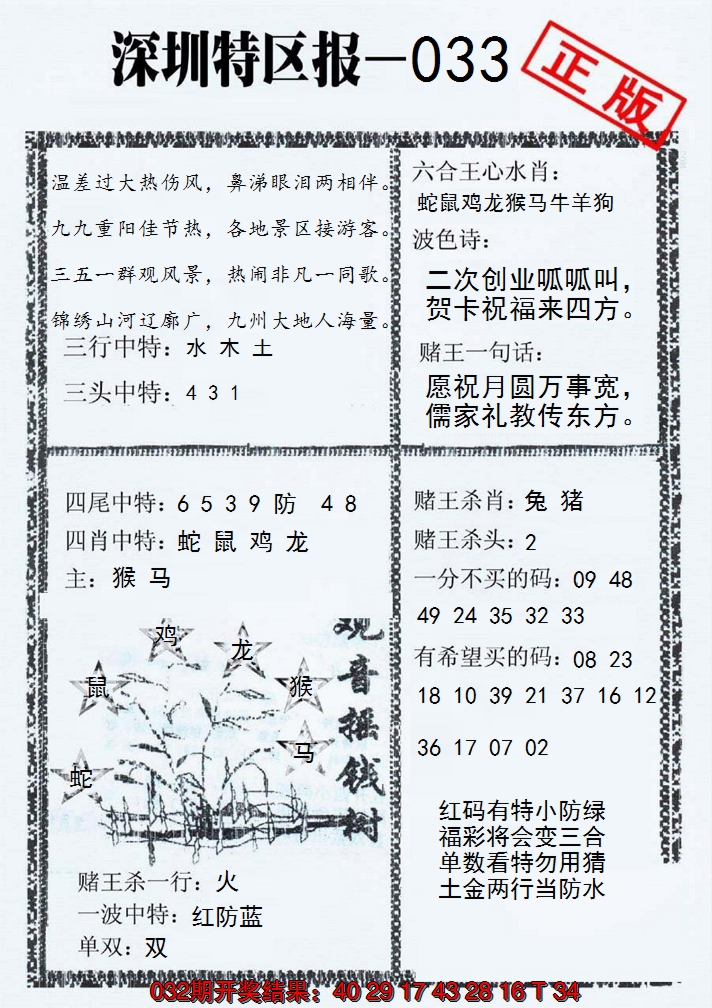 深圳特区报—033
正版
温差过大热伤风，鼻涕眼泪两相伴。
九九重阳佳节热，各地景区接游客。
三五一群观风景，热闹非凡一同歌。
锦绣山河辽廓广，九州大地人海量。
三行中特：水 木 土
三头中特：4 3 1
六合王心水肖：
蛇鼠鸡龙猴马牛羊狗
波色诗：
二次创业呱呱叫，
贺卡祝福来四方。
赌王一句话：
愿祝月圆万事宽，
儒家礼教传东方。
四尾中特：6 5 3 9 防 4 8
四肖中特：蛇 鼠 鸡 龙
主：猴 马
鸡
龙
鼠
猴
马
蛇
观音摇钱树
赌王杀一行：火
一波中特：红防蓝
单双：双
赌王杀肖：兔 猪
赌王杀头：2
一分不买的码：09 48
49 24 35 32 33
有希望买的码：08 23
18 10 39 21 37 16 12
36 17 07 02
红码有特小防绿
福彩将会变三合
单数看特勿用猜
土金两行当防水
032期开奖结果：40 29 17 43 28 16 T 34